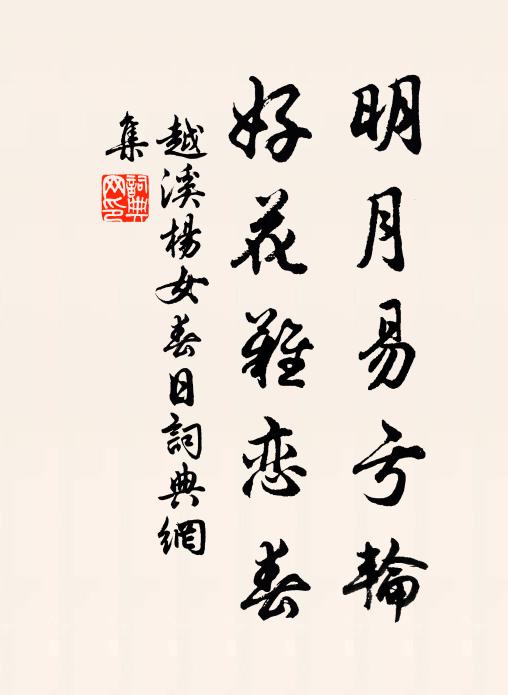 明月易亏輪
好花難恋春
越溪楊女春日詞典網
集
詞典
网印